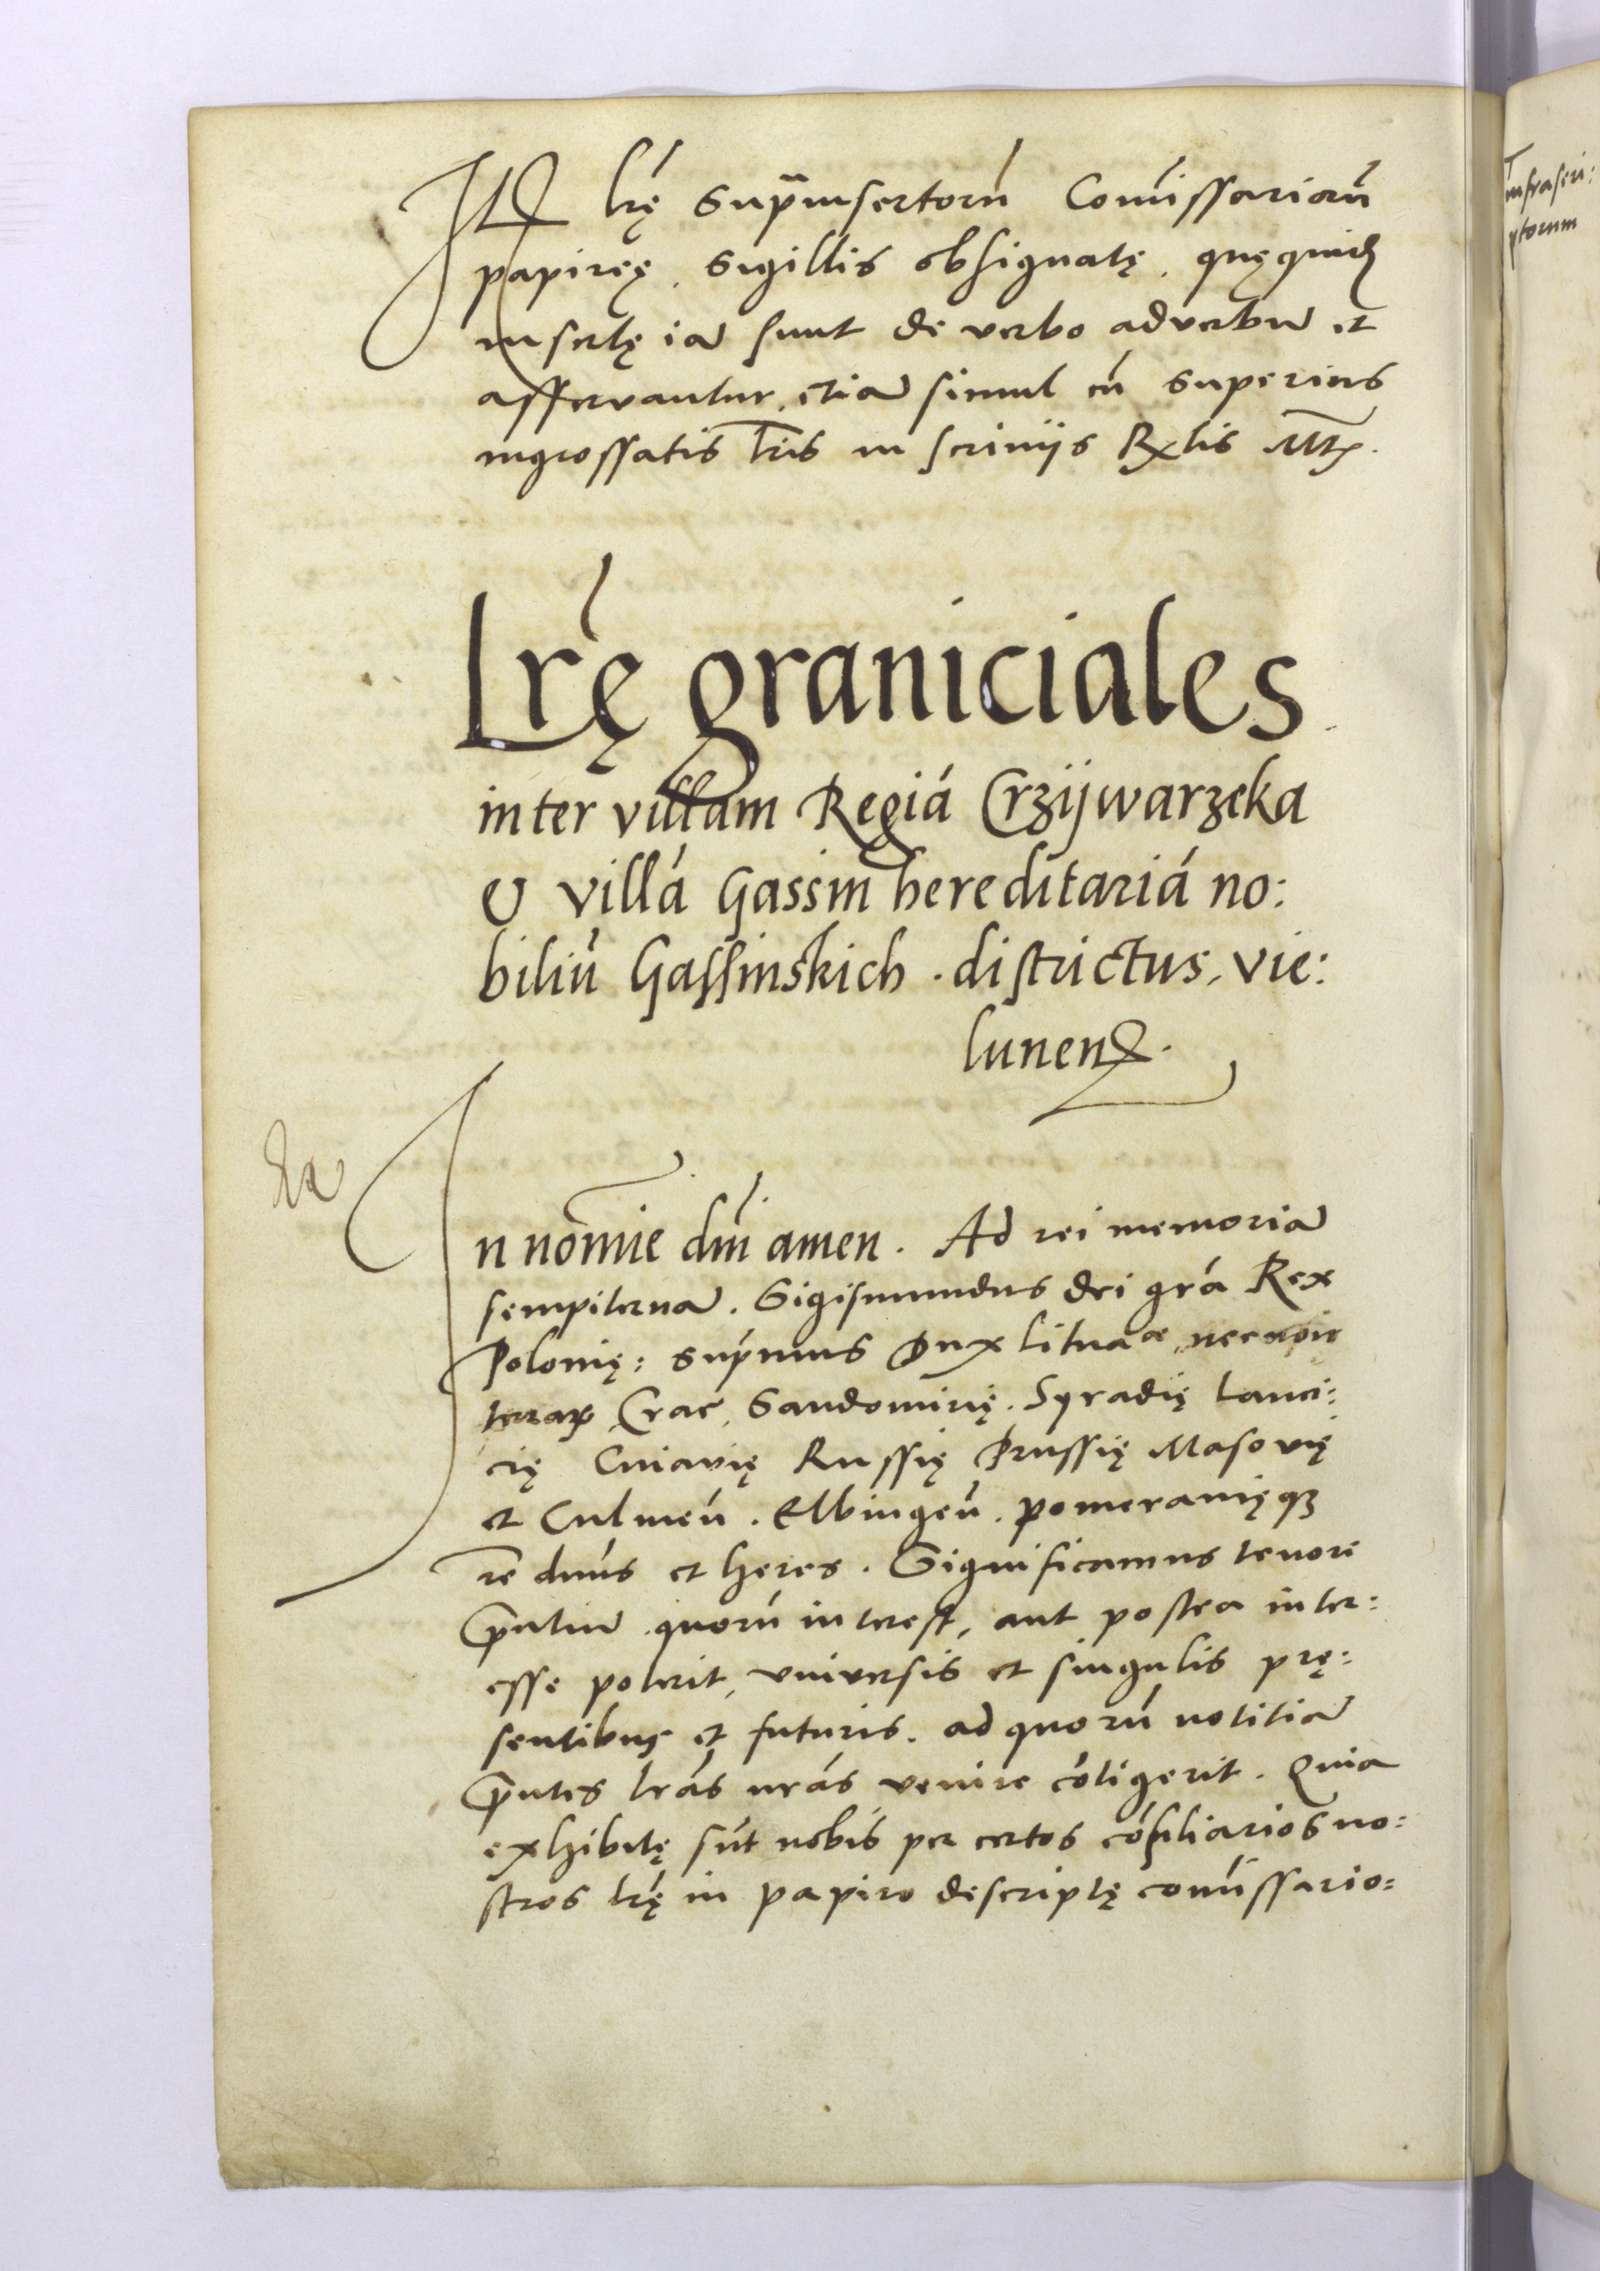 Itē lr̄ę supᵃinsertorū Com̄issariorū
papireę, sigillis obsignatę, quęquid̄
insertę iā sunt de verbo ad verbū et
asservantur, etiā simul cū superius
ingrossatis lr̄is in scriniis Rēlis Mtis.
Lr̄ę graniciales
inter villam Regiā Crzijwarzeka
& villā Gassin hereditariā no:
biliū Gassinskich. districtus, vie:
lunen̄.
In nomīe dn̄i amen. Ad rei memoriā
sempiternā. Sigismundus dei grā Rex
Polonię: sup̄mus Dux lituaæ, necnon
terraꝝ Crac̄, Sandomirię. Syradię lanci:
cię Cuiavię Russię Prussię Masovię
et Culmen̄. Elbingen̄. pomeranięqꝫ
rē dn̄us et heres. Significamus tenore
pn̄tiū quorū interest, aut postea inter:
esse poterit, universis et singulis prę:
sentibus et futuris. ad quorū notitiā
pn̄tes lr̄as nr̄as venire cōtigerit. Quia
exhibitę sūt nobis per certos cōsiliarios no:
stros lr̄ę in papiro descriptę com̄issario=
infrascri:
ptorum